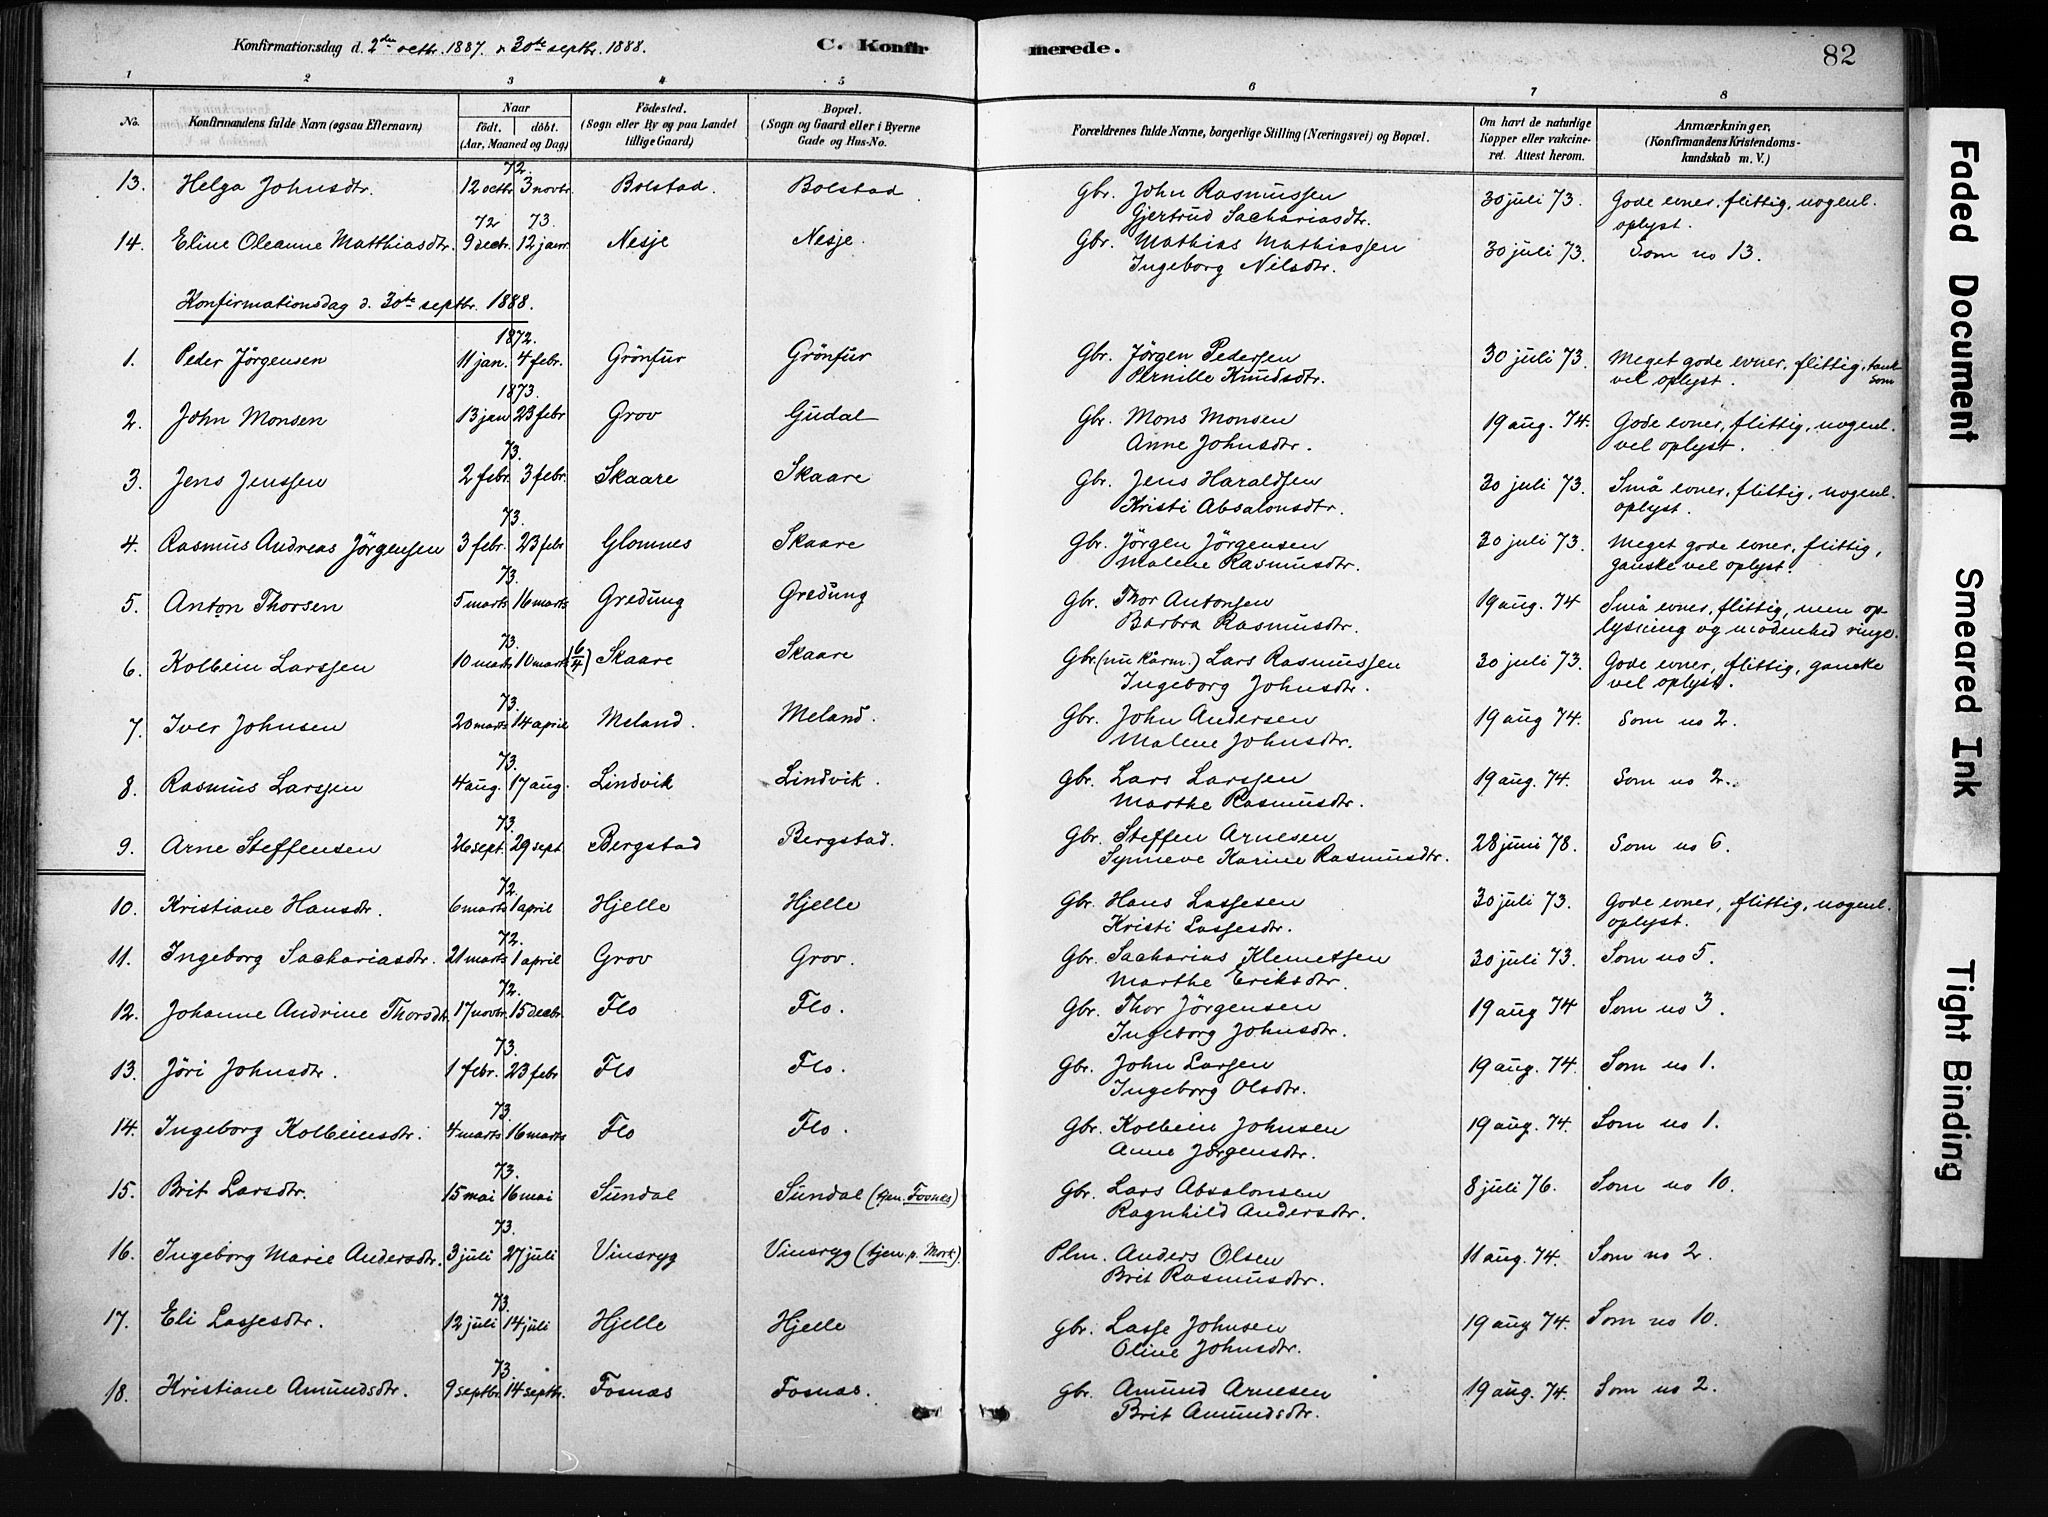 Konfirmationsdag d. 2den octbr. 1887. & 30te septbr. 1888. C. Konfirmerede. 82
1 2 3 4 5 6 7 8
No. Konfirmandens fulde Navn (ogsaa Efternavn) Naar født. døbt. (Aar, Maaned og Dag) Fødested. (Sogn eller By og paa Landet tillige Gaard) Bopæl. (Sogn og Gaard eller i Byerne Gade og Hus-No. Forældrenes fulde Navne, borgerlige Stilling (Næringsvei) og Bopæl. Om havt de naturlige Kopper eller vakcineret. Attest herom. Anmærkninger. (Konfirmandens Kristendomskundskab m. V.)
72.
13. Helga Johnsdtr. 12 octbr 3 novbr. Bolstad. Bolstad Gbr. John Rasmussen 30 juli 73. Gode evner, flittig, nogenl.
Gjertrud Sachariasdtr. oplyst.
72 73.
14. Eline Oleanne Matthiasdtr. 9 decbr. 12 janr. Nesje Nesje. Gbr. Mathias Mathiassen 30 juli 73. Som no 13.
Ingeborg Nilsdtr.
Konfirmationsdag d. 30te septbr. 1888.
1872.
1. Peder Jörgensen 11 jan. 4 febr. Grönfur Grönfur Gbr. Jörgen Pedersen 30 juli 73. Meget gode evner, flittig, tank-
Pernille Knudsdtr. vel oplyst. som
1873.
2. John Monsen 13 jan 23 febr Grov Gudal Gbr. Mons Monsen 19 aug. 74. Gode evner, flittig, nogenl.
Anne Johnsdtr. vel oplyst.
73.
3. Jens Jenssen 2 febr. 3 febr. Skaare Skaare Gbr. Jens Haraldsen 30 juli 73. Små evner, flittig, nogenl.
Kristi Absalonsdtr. oplyst.
73.
4. Rasmus Andreas Jörgensen 3 febr. 23 febr Glomnes Skaare Gbr. Jörgen Jörgensen 30 juli 73. Meget gode evner, flittig,
Malene Rasmusdtr. ganske vel oplyst.
73.
5. Anton Thorsen 5 marts 16 marts Gredung Gredung Gbr. Thor Antonsen 19 aug. 74 Små evner, flittig, men op-
Barbra Rasmusdtr. lysning og modenhed ringe.
73.
6. Kolbein Larssen 10 marts 10 marts (6/4) Skaare Skaare Gbr. (nu Kårm.) Lars Rasmussen 30 juli 73. Gode evner, flittig, ganske
Ingeborg Johnsdtr. vel oplyst.
73.
7. Iver Johnsen 20 marts 14 april Meland. Meland. Gbr. John Andersen 19 aug 74. Som no 2.
Malene Johnsdtr.
73.
8. Rasmus Larssen 4 aug. 17 aug. Lindvik Lindvik. Gbr. Lars Larssen 19 aug. 74. Som no 2.
Marthe Rasmusdtr.
73.
9. Arne Steffensen 26 sept. 29 sept. Bergstad Bergstad. Gbr. Steffen Arnesen 28 juni 78. Som no 6.
Synneve Karine Rasmusdtr.
72.
10. Kristiane Hansdtr. 6 marts 1 april Hjelle Hjelle Gbr. Hans Lassesen 30 juli 73. Gode evner, flittig, nogenl.
Kristi Lassesdtr. oplyst.
72.
11. Ingeborg Sachariasdtr. 21 marts 1 april Grov Grov. Gbr. Sacharias Klemetsen 30 juli 73. Som no 5.
Marthe Eriksdtr.
72.
12. Johanne Andrine Thorsdtr. 17 novbr. 15 decbr. Flo Flo. Gbr. Thor Jörgensen 19 aug 74 Som no 3.
Ingeborg Johnsdtr.
73.
13. Jöri Johnsdtr. 1 febr. 23 febr Flo Flo. Gbr. John Larsen 19 aug. 74. Som no 1.
Ingeborg Olsdtr.
73.
14. Ingeborg Kolbeinsdtr. 4 marts 16 marts Flo Flo. Gbr. Kolbein Johnsen 19 aug. 74. Som no 1.
Anne Jörgensdtr.
73.
15. Brit Larsdtr. 15 mai 16 mai Sundal Sundal (tjen. Fosnes) Gbr. Lars Absalonsen 8 juli 76. Som no 10.
Ragnhild Andersdtr.
73.
16. Ingeborg Marie Andersdtr. 3 juli 27 juli Vinsryg Vinsryg (tjen. p. Mork). Plm. Anders Olsen 11 aug. 74. Som no 2.
Brit Rasmusdtr.
73.
17. Eli Lassesdtr. 12 juli 14 juli Hjelle Hjelle Gbr. Lasse Johnsen 19 aug 74. Som no 10.
Oline Johnsdtr.
73.
18. Kristiane Amundsdtr. 9 septbr. 14 septbr. Fosnas Fosnas. Gbr. Amund Arnesen 19 aug. 74. Som no 2.
Brit Amundsdtr.
Faded Document
Smeared Ink
Tight Binding